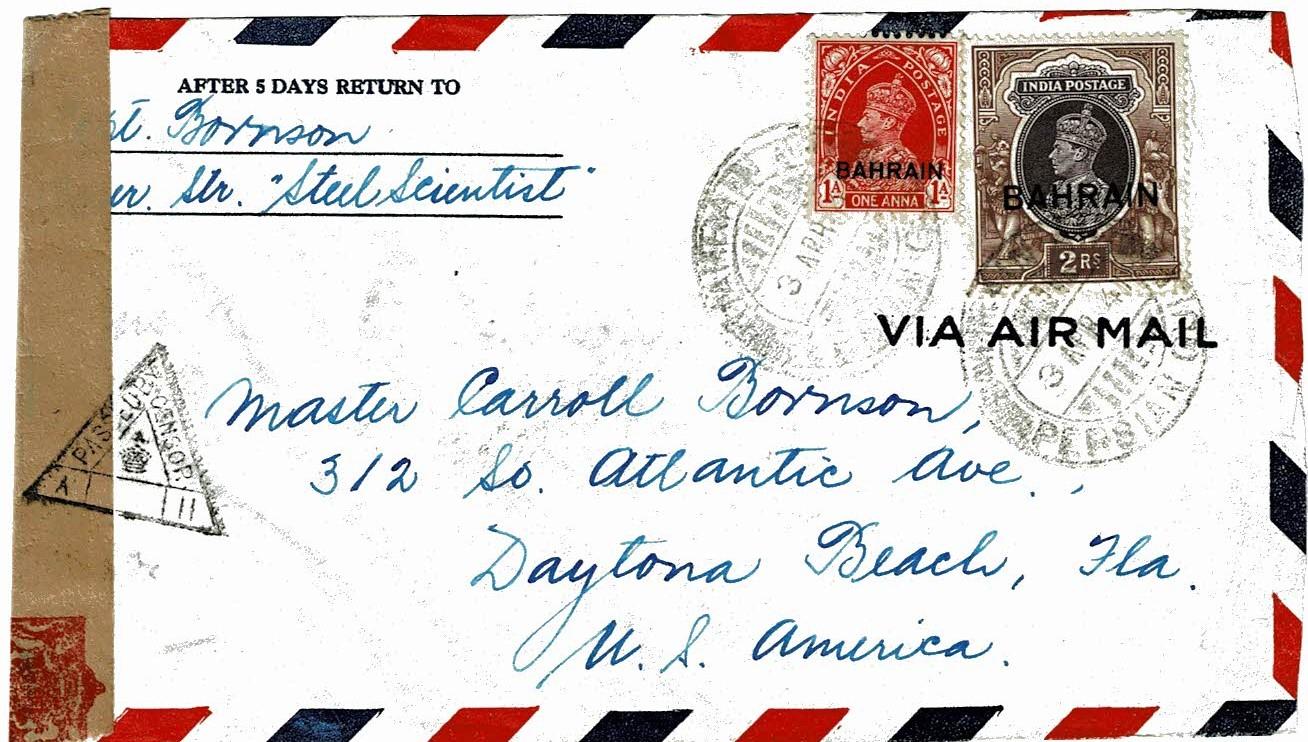 AFTER 5 DAYS RETURN TO
pt. Bornson
er. Str. "Steel Scientist"
INDIA POSTAGE
BAHRAIN
1A 1A
ONE ANNA
INDIA POSTAGE
BAHRAIN
2 RS
BAHRAIN
3 APR
3 APR 41
PERSIAN G
VIA AIR MAIL
PASSED BY CENSOR
A 11
Master Carroll Bornson,
312 So. Atlantic Ave.,
Daytona Beach, Fla.
U. S. America.